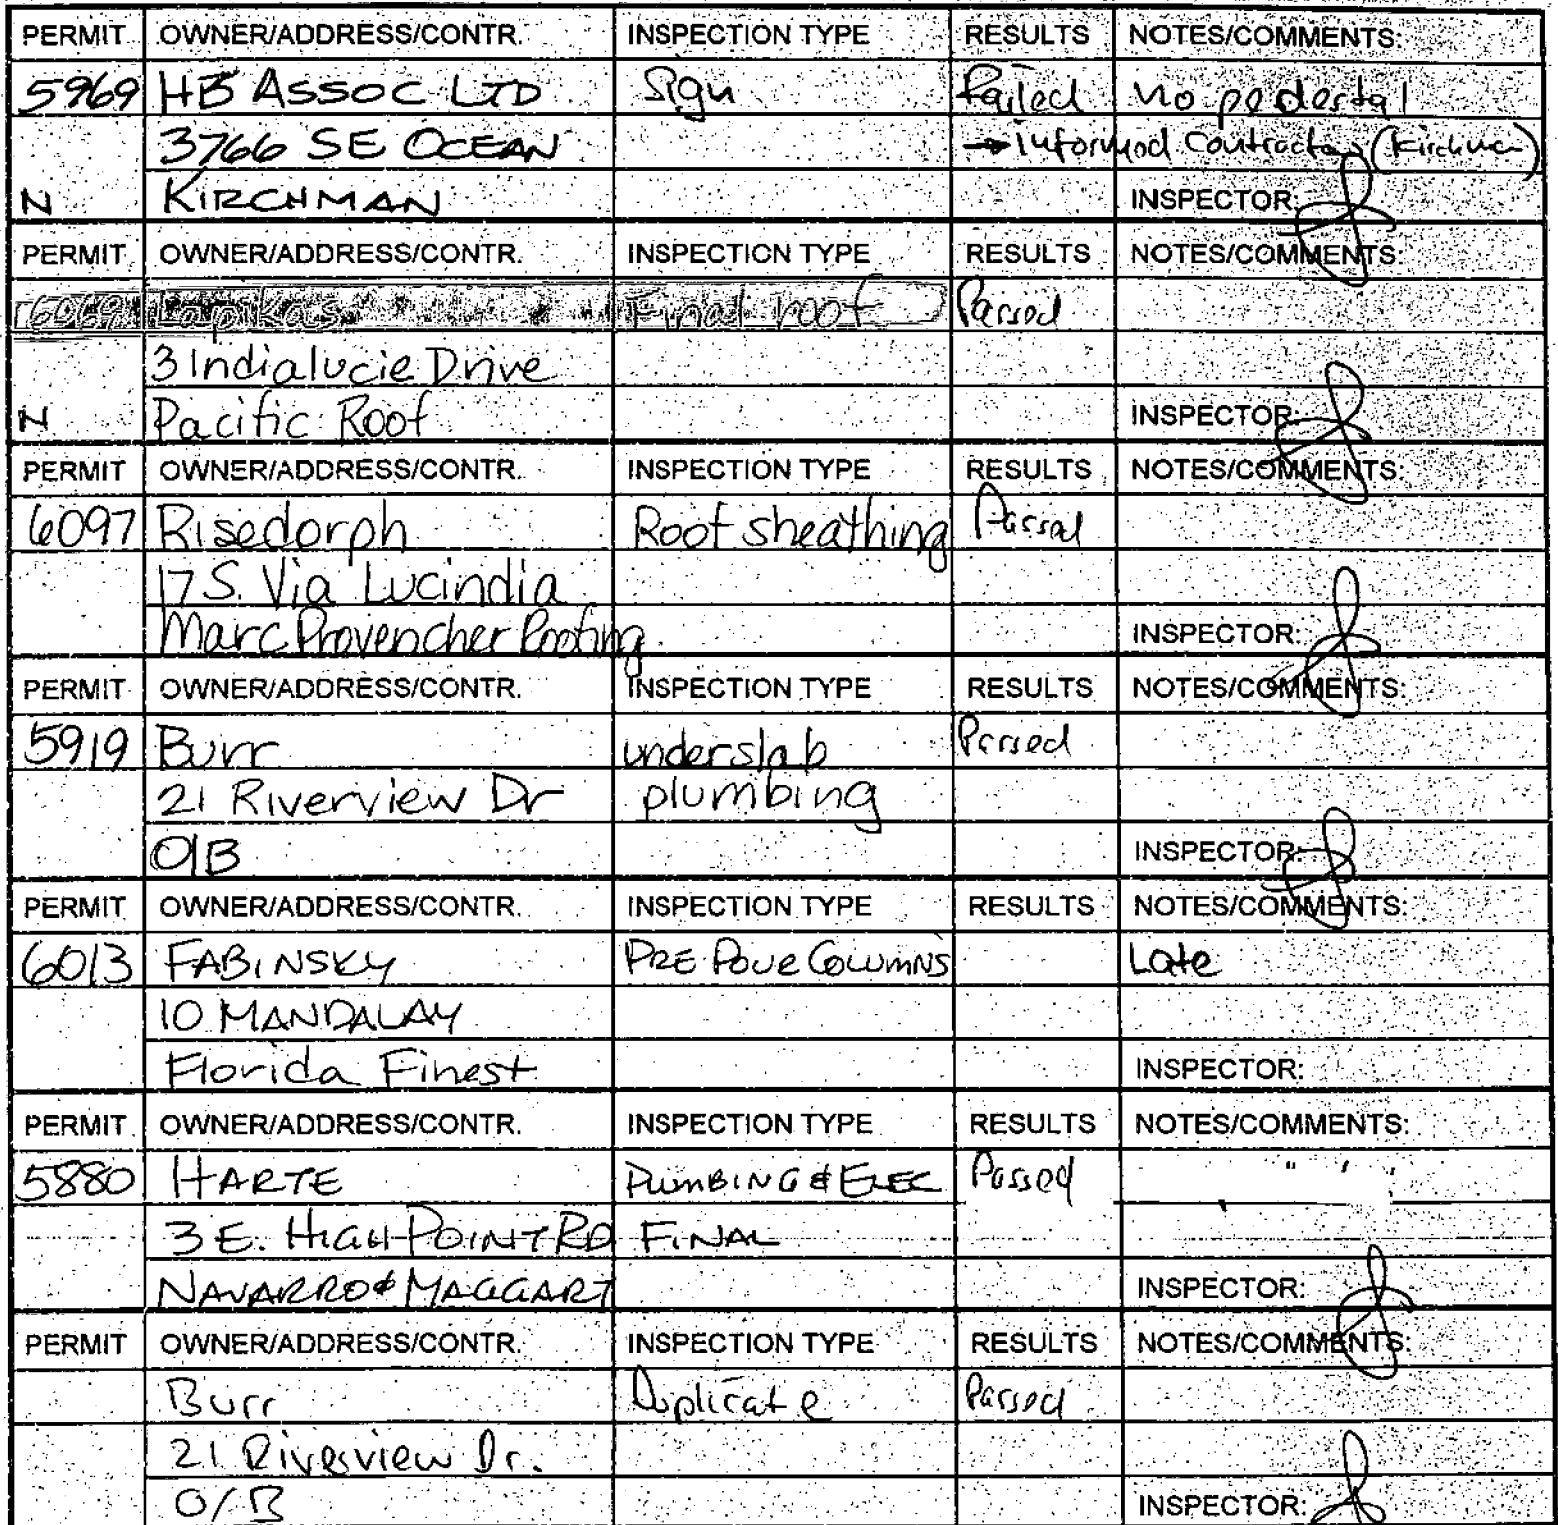 PERMIT OWNER/ADDRESS/CONTR. INSPECTION TYPE RESULTS NOTES/COMMENTS:
5969 HB ASSOC LTD Sign Failed No pedestal
3766 SE OCEAN → informed Contractor (Kirchman)
N KIRCHMAN INSPECTOR:
PERMIT OWNER/ADDRESS/CONTR. INSPECTION TYPE RESULTS NOTES/COMMENTS:
6069 Lapikas Final roof Passed
3 Indialucie Drive
N Pacific Roof INSPECTOR:
PERMIT OWNER/ADDRESS/CONTR. INSPECTION TYPE RESULTS NOTES/COMMENTS:
6097 Risedorph Roof sheathing Passed
17 S. Via Lucindia
Marc Provencher Roofing INSPECTOR:
PERMIT OWNER/ADDRESS/CONTR. INSPECTION TYPE RESULTS NOTES/COMMENTS:
5919 Burr underslab Passed
21 Riverview Dr plumbing
O/B INSPECTOR:
PERMIT OWNER/ADDRESS/CONTR. INSPECTION TYPE RESULTS NOTES/COMMENTS:
6013 FABINSKY PRE POUR COLUMNS Late
10 MANDALAY
Florida Finest INSPECTOR:
PERMIT OWNER/ADDRESS/CONTR. INSPECTION TYPE RESULTS NOTES/COMMENTS:
5880 HARTE PLUMBING & ELEC Passed
3 E. HIGH POINT RD FINAL
NAVARRO & MAGGART INSPECTOR:
PERMIT OWNER/ADDRESS/CONTR. INSPECTION TYPE RESULTS NOTES/COMMENTS:
Burr Duplicate Passed
21 Riverview Dr.
O/B INSPECTOR: